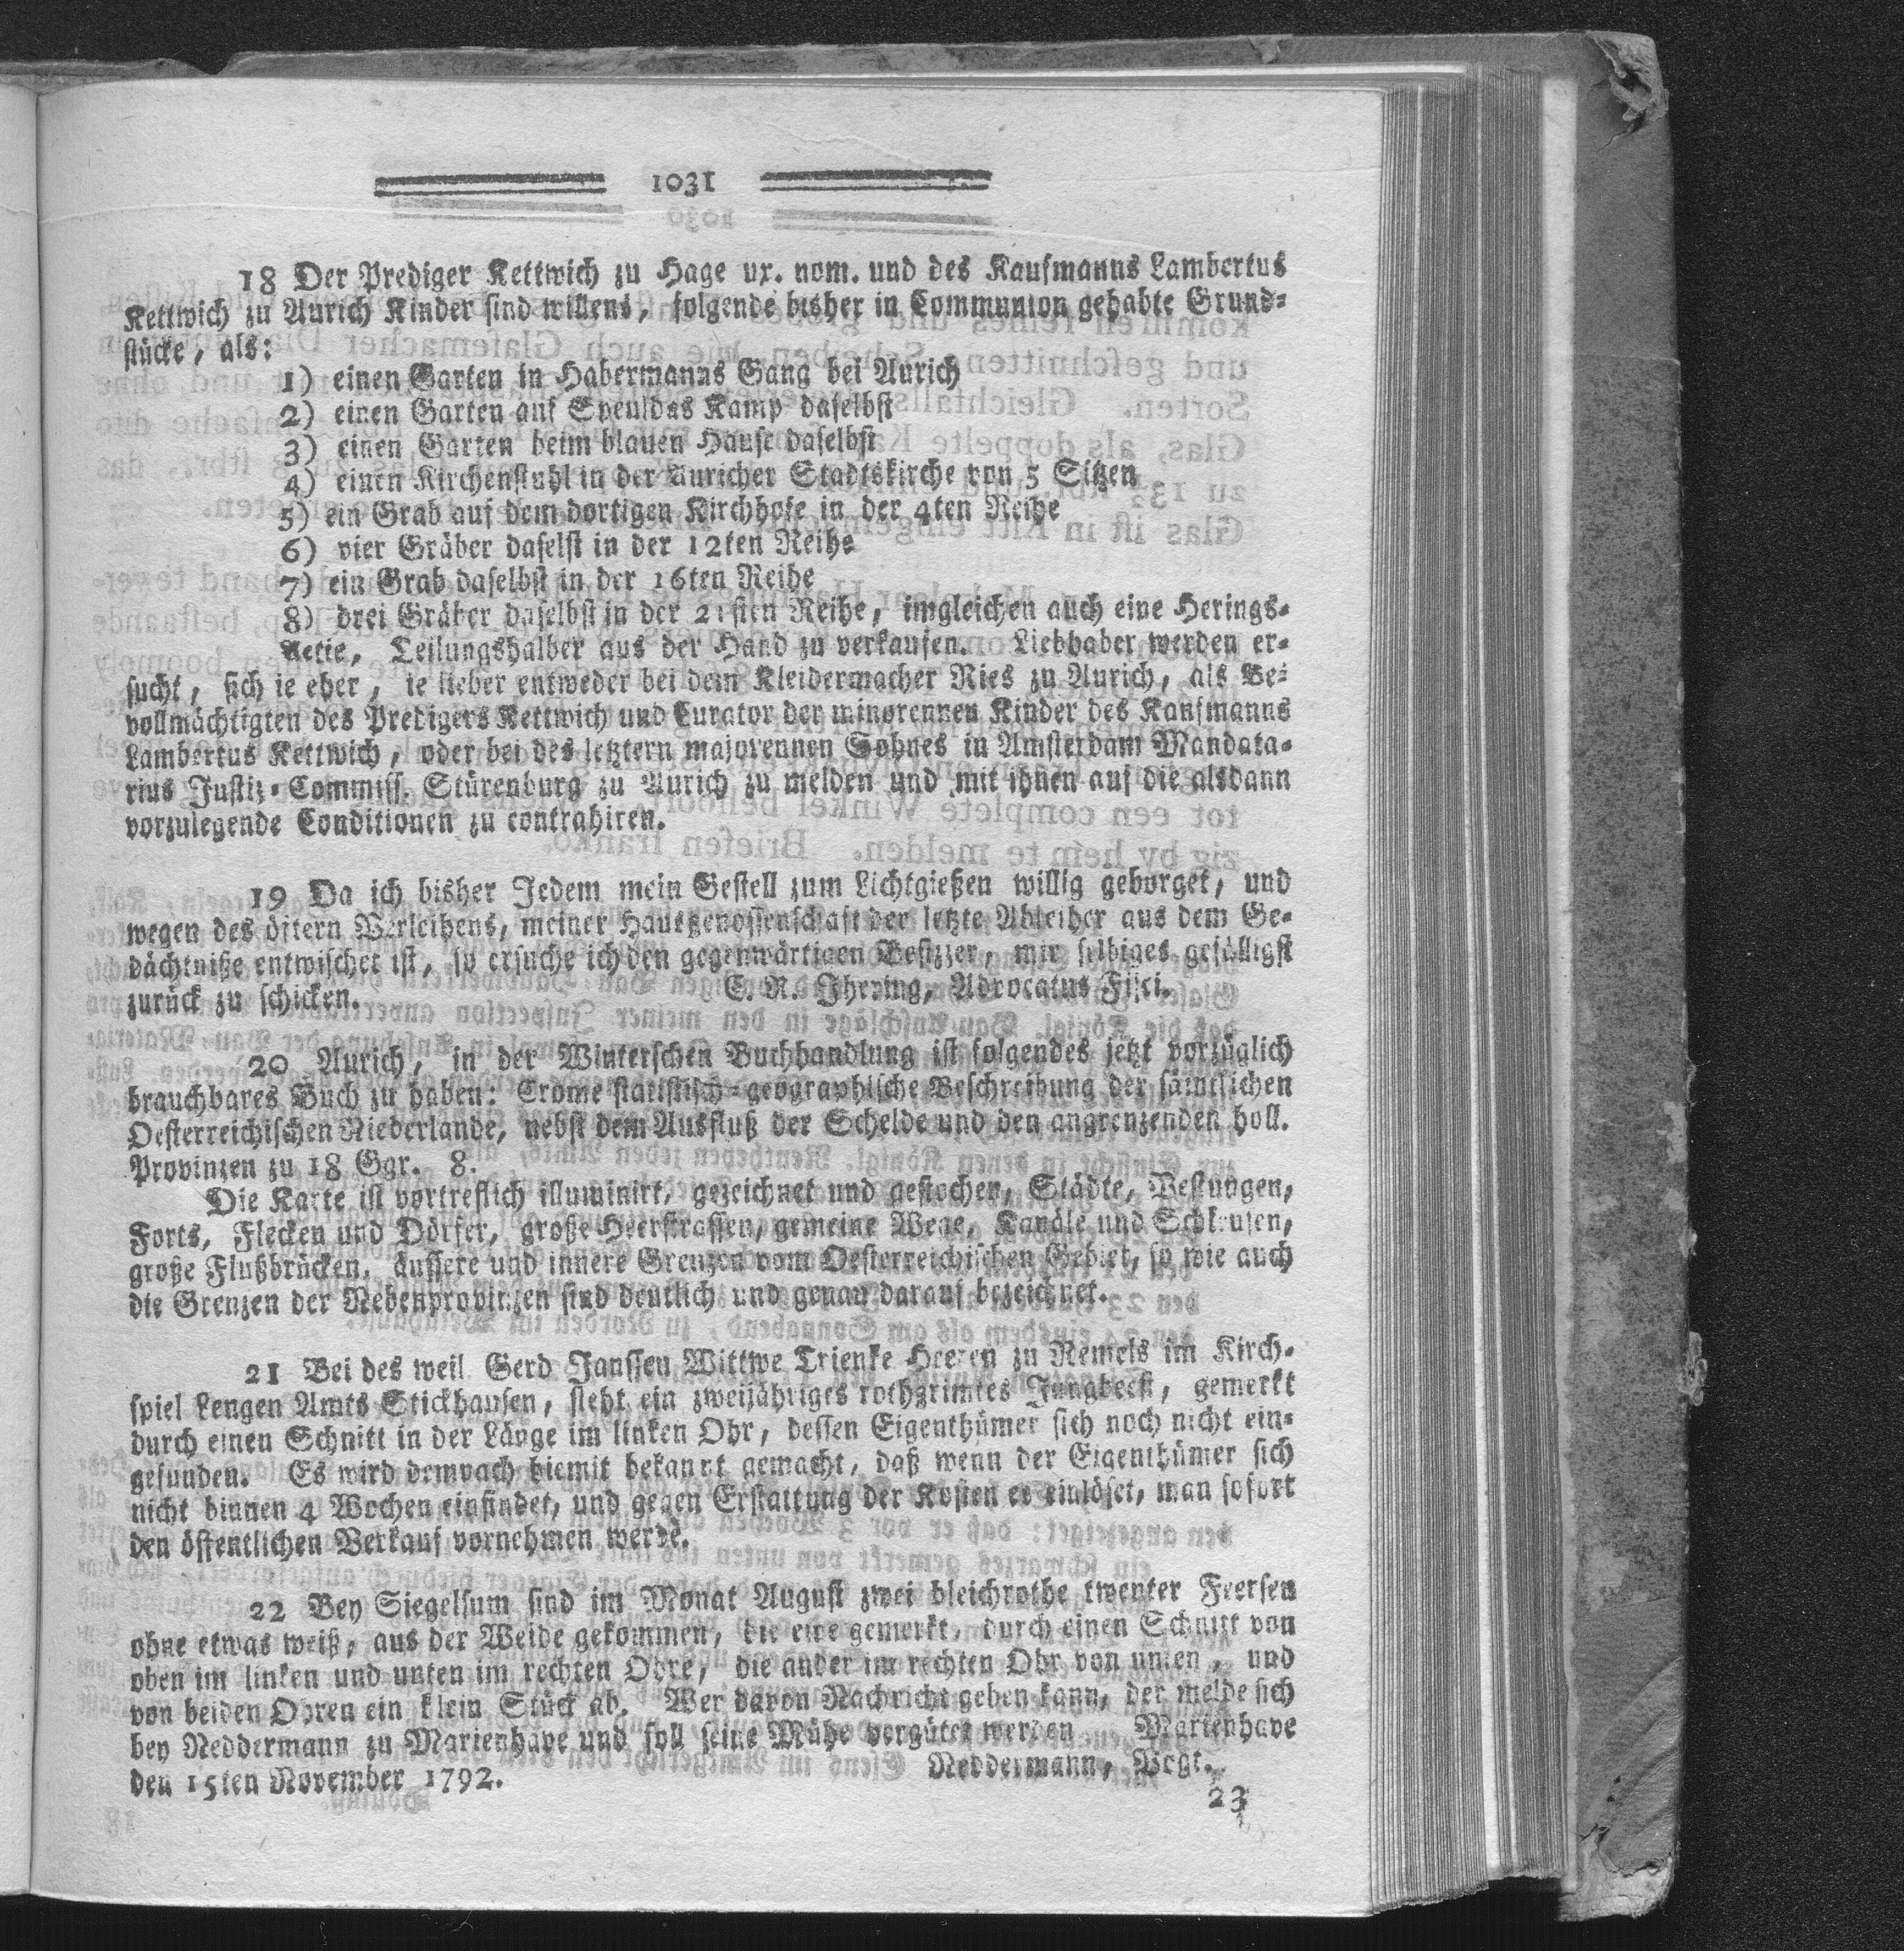 1031
18 Der Prediger Kettwich zu Hage ux. nom. und des Kaufmanns Lambertus
Kettwich zu Aurich Kinder sind willens, folgende bisher in Communion gehabte Grund-
stücke, als:
1) einen Garten in Habermanns Gang bei Aurich
2) einen Garten auf Speuldas Kamp daselbst
3) einen Garten beim blauen Hause daselbst
4) einen Kirchenstuhl in der Auricher Stadtskirche von 5 Sitzen
5) ein Grab auf dem dortigen Kirchhofe in der 4ten Reihe
6) vier Gräber daselst in der 12ten Reihe
7) ein Grab daselbst in der 16ten Reihe
8) drei Gräber daselbst in der 21sten Reihe, imgleichen auch eine Herings-
Actie, Teilungshalber aus der Hand zu verkaufen. Liebhaber werden er-
sucht, sich ie eher, ie lieber entweder bei dem Kleidermacher Ries zu Aurich, als Be-
vollmächtigten des Predigers Kettwich und Curator der minorennen Kinder des Kaufmanns
Lambertus Kettwich, oder bei des letztern majorennen Sohnes in Amsterdam Mandata-
rius Justiz-Commiss. Stürenburg zu Aurich zu melden und mit ihnen auf die alsdann
vorzulegende Conditionen zu contrahiren.
19 Da ich bisher Jedem mein Gestell zum Lichtgießen willig geborget, und
wegen des öftern Verleihens, meiner Hausgenossenschaft der letzte Ableiher aus dem Ge-
dächtniße entwischet ist, so ersuche ich den gegenwärtigen Besizzer, mir selbiges gefälligst
zurück zu schicken. E. R. Jhering, Advocatus Fisci.
20 Aurich, in der Winterschen Buchhandlung ist folgendes jetzt vorzüglich
brauchbares Buch zu haben: Crome statistisch-geographische Beschreibung der sämtlichen
Oesterreichischen Niederlande, nebst dem Ausfluß der Schelde und den angrenzenden holl.
Provinzen zu 18 Ggr. 8.
Die Karte ist vortreflich illuminirt, gezeichnet und gestochen, Städte, Vestungen,
Forts, Flecken und Dörfer, große Heerstrassen, gemeine Wege, Kanäle und Schleusen,
große Flußbrücken, äussere und innere Grenzen vom Oesterreichischen Gebiet, so wie auch
die Grenzen der Nebenprovinzen sind deutlich und genau darauf bezeichnet.
21 Bei des weil Gerd Janssen Wittwe Trienke Heeren zu Remels im Kirch-
spiel Lengen Amts Stickhausen, steht ein zweijähriges rothgrimtes Jungbeest, gemerkt
durch einen Schnitt in der Länge im linken Ohr, dessen Eigenthümer sich noch nicht ein-
gefunden. Es wird demnach hiemit bekannt gemacht, daß wenn der Eigenthümer sich
nicht binnen 4 Wochen einfindet, und gegen Erstattung der Kosten es einlöset, man sofort
den öffentlichen Verkauf vornehmen werde.
22 Bey Siegelsum sind im Monat August zwei bleichrothe twenter Feersen
ohne etwas weiß, aus der Weide gekommen, die eine gemerkt, durch einen Schnitt von
oben im linken und unten im rechten Ohre, die ander im rechten Ohr von unten, und
von beiden Ohren ein klein Stück ab. Wer davon Nachricht geben kann, der melde sich
bey Neddermann zu Marienhave und soll seine Mühe vergütet werden Marienhave
den 15ten November 1792. Neddermann, Vogt.
23